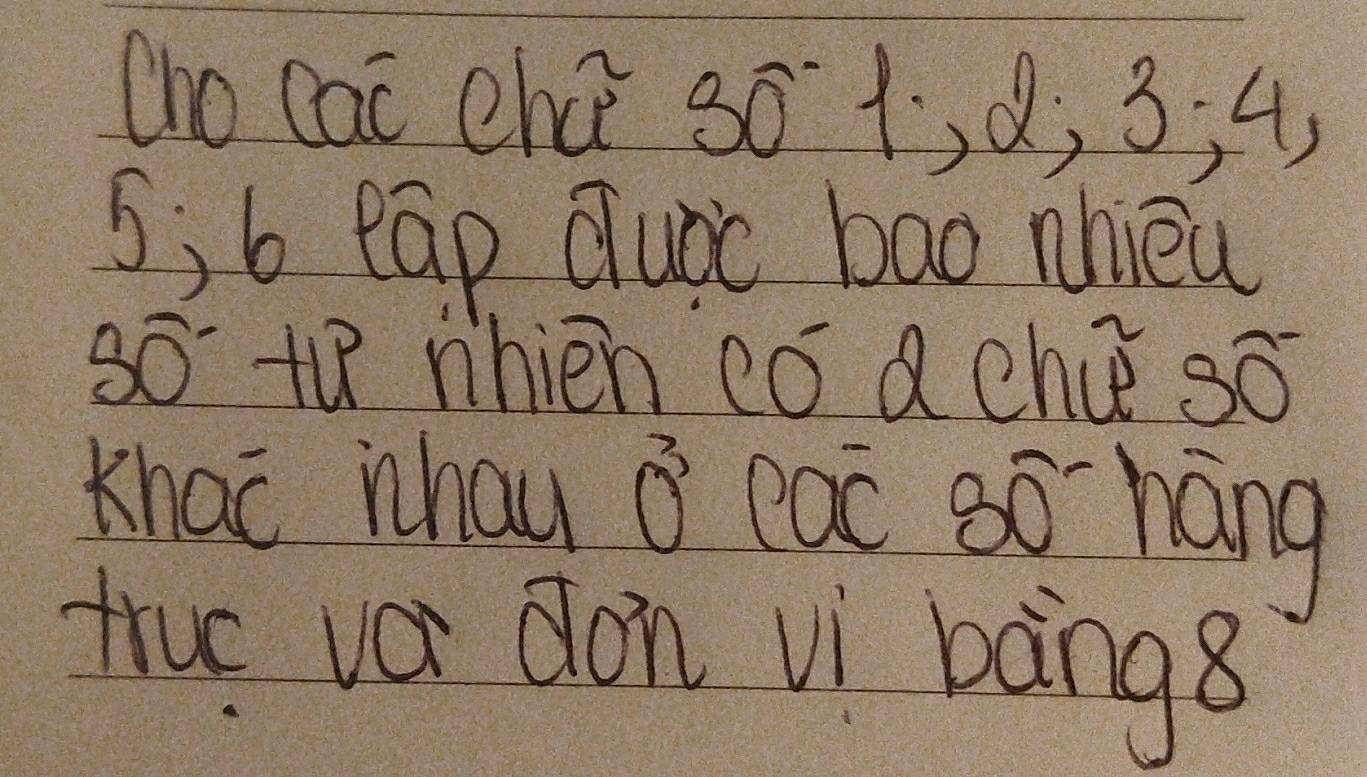 Cho các chữ số 1; 2; 3; 4,
5; 6 lập được bao nhiêu
số tự nhiên có 2 chữ số
khác nhau ở các số hàng
trục và đơn vị bằng 8